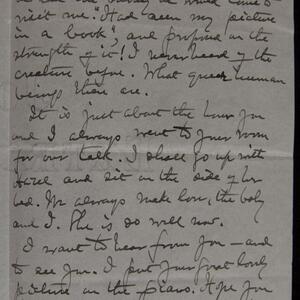 visit me. "Had seen my picture
in a book" and proposed on the
strength of it! I never heard of the
creature before. What queer human
beings there are.
It is just about the hour for
and I always want to your room
for our talk. I shall go up with
Hazel and sit on the side of her
bed. We always make love, the baby
and I. She is so well now.
I want to hear from you – and
to see you. I put your great lovely
picture on the piano. Hope you